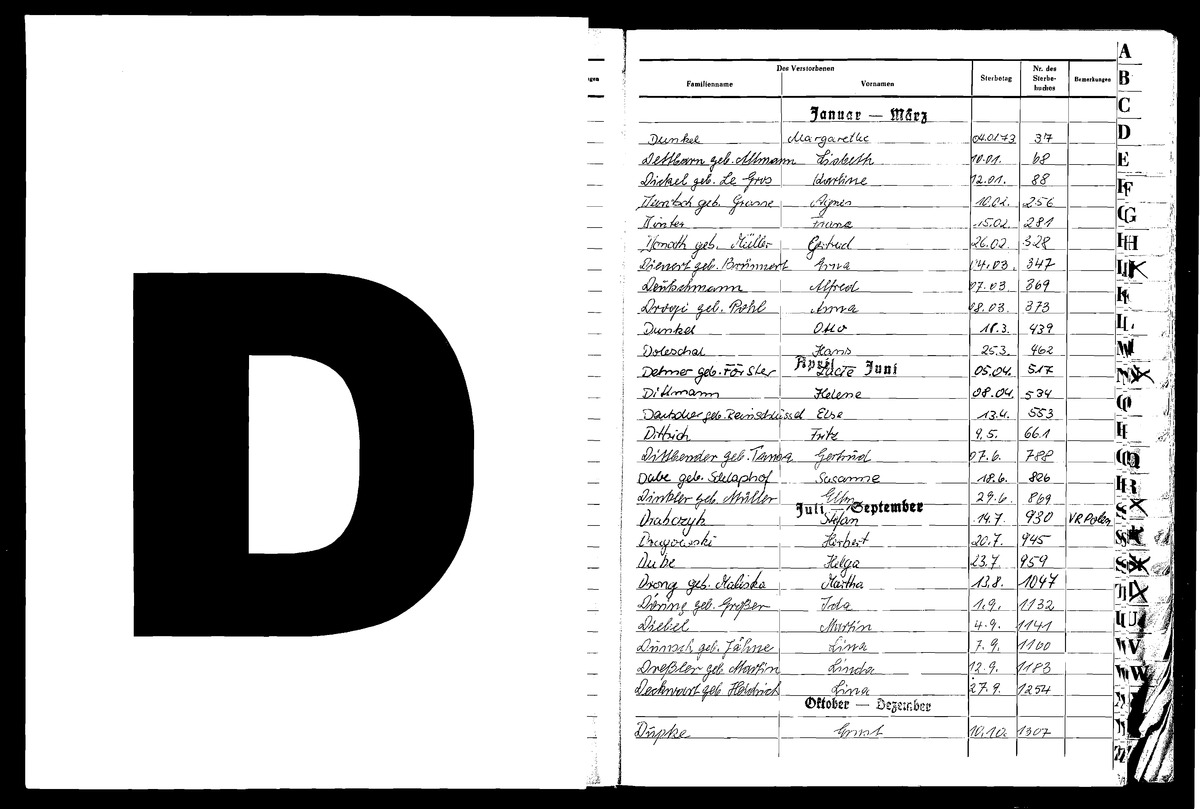 D
Des Verstorbenen
Familienname Vornamen Sterbetag Nr. des Sterbe-buches Bemerkungen
Januar — März
Dunkel Margarethe 04.01.73 37
Dettborn geb. Altmann Lisbeth 10.01. 68
Dickel geb. Le Gros 12.01. 88
geb. Agnes 10.02. 256
15.02. 281
geb. Müller Gertrud 26.02. 328
Dienert geb. Brünnert Erna 04.03. 347
Deutschmann Alfred 07.03. 369
geb. Pohl Anna 08.03. 373
Dunkel Otto 18.3. 439
Doleschal Hans 25.3. 462
April Juni
Dehmer geb. Förster 05.04. 517
Dittmann Helene 08.04. 534
geb. Else 13.4. 553
Dittrich Fritz 9.5. 661
geb. Gertrud 07.6. 788
Dube geb. Schlaphof Susanne 18.6. 826
Dinkler geb. Müller 29.6. 869
Juli — September
Drabczyk Stefan 14.7. 930 VR Polen
Herbert 20.7. 945
Dube Helga 23.7 959
Drong geb. Maliska Martha 13.8. 1047
Döring geb. Großer Ida 1.9. 1132
Diebel Martin 4.9. 1141
Dünsch geb. Jähne Lina 7.9. 1160
Dreßler geb. Martin Linda 12.9. 1183
Deckwart geb. Heidrich Lina 27.9. 1254
Oktober — Dezember
Dupke Ernst 10.10. 1307
A
B
C
D
E
F
G
H
K